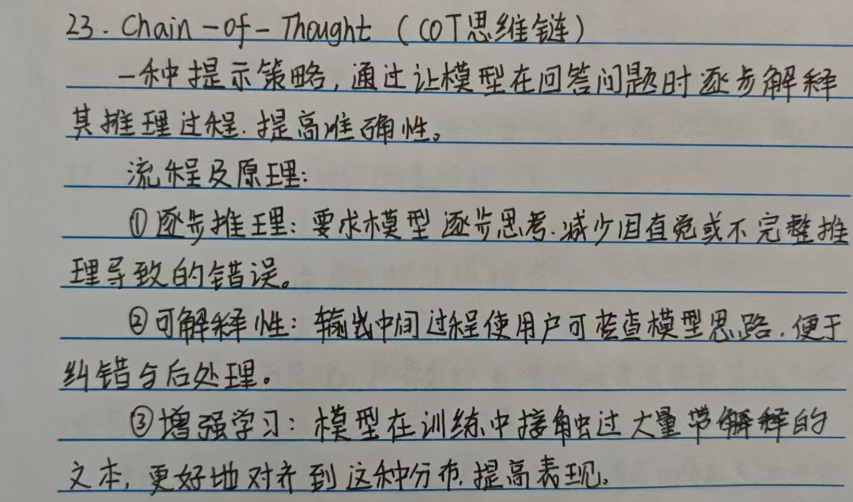 23. Chain-of-Thought (COT思维链)
一种提示策略,通过让模型在回答问题时逐步解释
其推理过程.提高准确性。
流程及原理:
①逐步推理:要求模型逐步思考.减少因直觉或不完整推
理导致的错误。
②可解释性:输出中间过程使用户可检查模型思路.便于
纠错与后处理。
③增强学习:模型在训练中接触过大量带解释的
文本,更好地对齐到这种分布.提高表现。